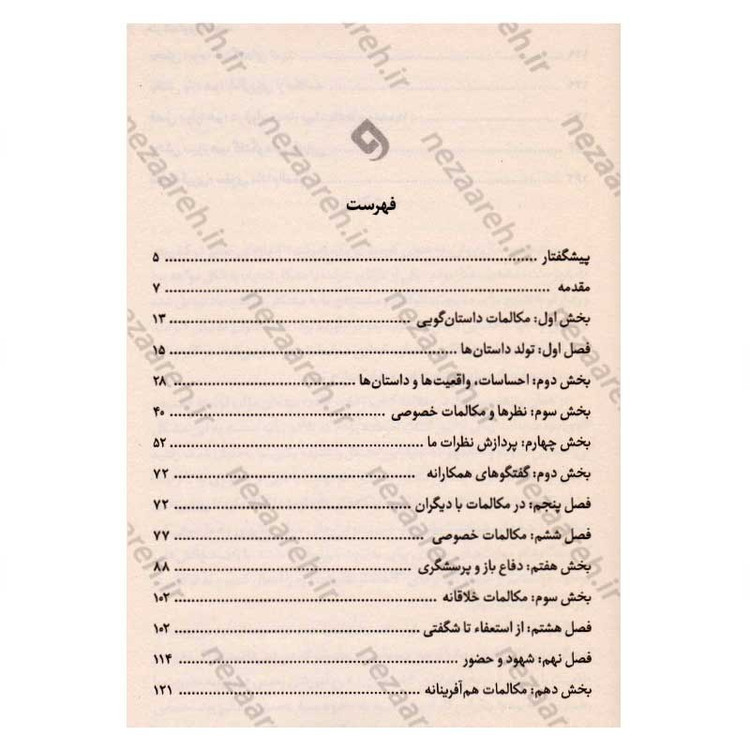 فهرست
پیشگفتار ........ ۵
مقدمه ........ ۷
بخش اول: مکالمات داستان‌گویی ........ ۱۳
فصل اول: تولد داستان‌ها ........ ۱۵
بخش دوم: احساسات، واقعیت‌ها و داستان‌ها ........ ۲۸
بخش سوم: نظرها و مکالمات خصوصی ........ ۴۰
بخش چهارم: پردازش نظرات ما ........ ۵۲
بخش دوم: گفتگوهای همکارانه ........ ۷۲
فصل پنجم: در مکالمات با دیگران ........ ۷۲
فصل ششم: مکالمات خصوصی ........ ۷۷
بخش هفتم: دفاع باز و پرسشگری ........ ۸۸
بخش سوم: مکالمات خلاقانه ........ ۱۰۲
فصل هشتم: از استعفاء تا شگفتی ........ ۱۰۲
فصل نهم: شهود و حضور ........ ۱۱۴
بخش دهم: مکالمات هم‌آفرینانه ........ ۱۲۱
nezaareh.ir